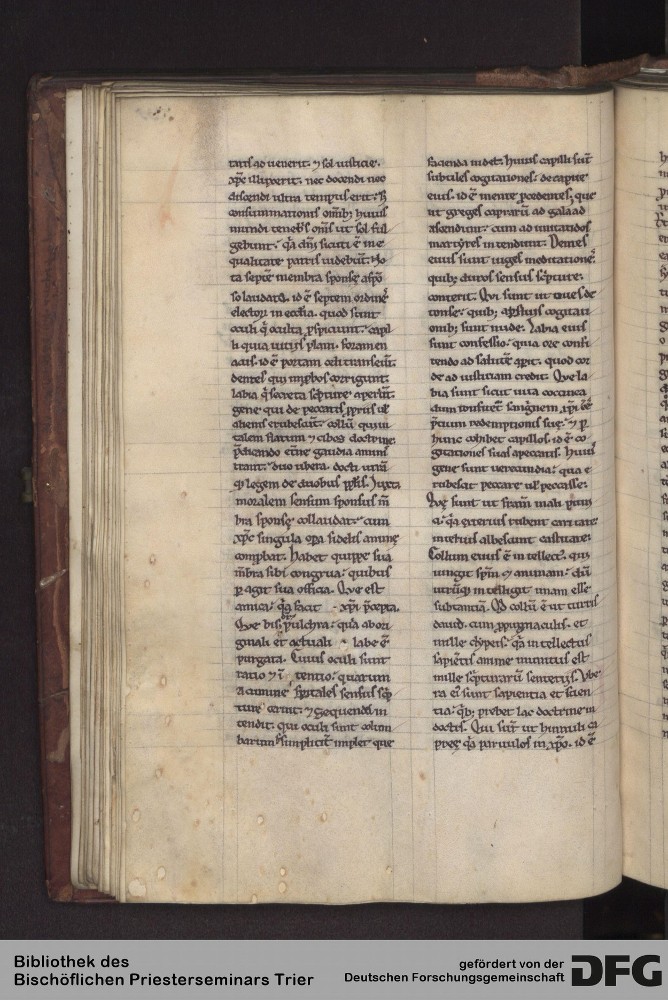 tatis qd uenerit. ⁊ sol iusticie.
xp̄c illuxerit. nec docendi nec
discendi ultra tempus erit. s;
consummationis omib; huius
mundi tenebris om̄s ut sol ful
gebunt. q̄a dm̄ sicuti ē in e
qualitate patris uidebūt. No
ta septē membra sponse a spō
so laudata. id ē septem ordinē
electorū in eccl̄ia. quod sunt
oculi q̄ oculta p̄spiciunt. capil
li quia uitiis plani. foramen
acus. id ē portam celi transeūt.
dentes qui improbos corrigunt.
labia q̄ secreta sc̄pture aperiūt.
gene qui de peccatis p̄priis ul'
alienis erubescūt. collū qui ui
talem flatum ⁊ cibos doctrine
p̄dicando et̄ne gaudia amnis
trant. duo ubera. docti utriu
q; legem de duobus pp̄lis. Iuxta
moralem sensum sponsus m̄
bra sponse collaudat. cum
xp̄c singula op̄a fidelis anime
comp̄bat. Habet quippe sua
m̄bra sibi congrua. quibus
p̄ agit sua officia. Que est
amica. q̄a facit xp̄i p̄cepta.
Que bis pulchra. quia abori
ginali et actuali labe ē
purgata. Cuius oculi sunt
ratio ⁊ ī tentio. quarum
acumine sp̄itales sensus sc̄p
ture cernit. ⁊ sequenda in
tendit. qui oculi sunt colum
barum simplicit̄ implet que
facienda uidet. huius capilli sūt
subtiles cogitationes. de capite
eius. id ē mente p̄cedentes; que
ut greges capraru ad galaad
ascendunt. cum ad imitandos
martyres intendunt. Dentes
eius sunt iuges meditationes.
quib; duros sensus sc̄pture.
conterit. Qui sunt ut oues de
tonse. quib; a prauis cogitati
onib; sunt nude. Labia eius
sunt confessio. quia ore confi
tendo ad salutē ap̄it. quod cor
de ad iusticiam credit. Que la
bia sunt sicut uitta coccinea
dum sanguinem xp̄i ēē
p̄cium redemptionis sue. ⁊ p̄
hunc cohibet capillos. id ē co
gitationes suas a peccatis. Huius
gene sunt uerecundia. qua e
rubescit peccare ul' peccasse.
Que sunt ut fragm̄ mali puni
ci. q̄a exterius rubent caritate
interius albescunt castitate.
Collum eius ē intellect'. qui
iungit sp̄m ⁊ animam. dū
utrūq; intelligit unam esse
substantiā. Qd collū ē ut turris
dauid. cum p̄pugnaculis. et
mille clypeis. q̄a intellectus
sapiētis anime munitus est
mille sc̄pturarū sentētiis. Vbe
ra ei' sunt sapientia et scien
tia. q̄b; prebet lac doctrine in
doctis. Qui sūt ut hinnuli ca
pree q̄a paruulos in xp̄o. id ē
Bibliothek des
Bischöflichen Priesterseminars Trier
gefördert von der
Deutschen Forschungsgemeinschaft
DFG